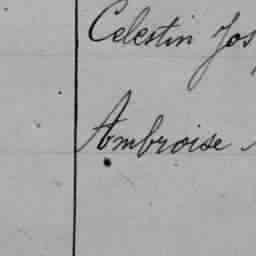 Celestin Jos
Ambroise